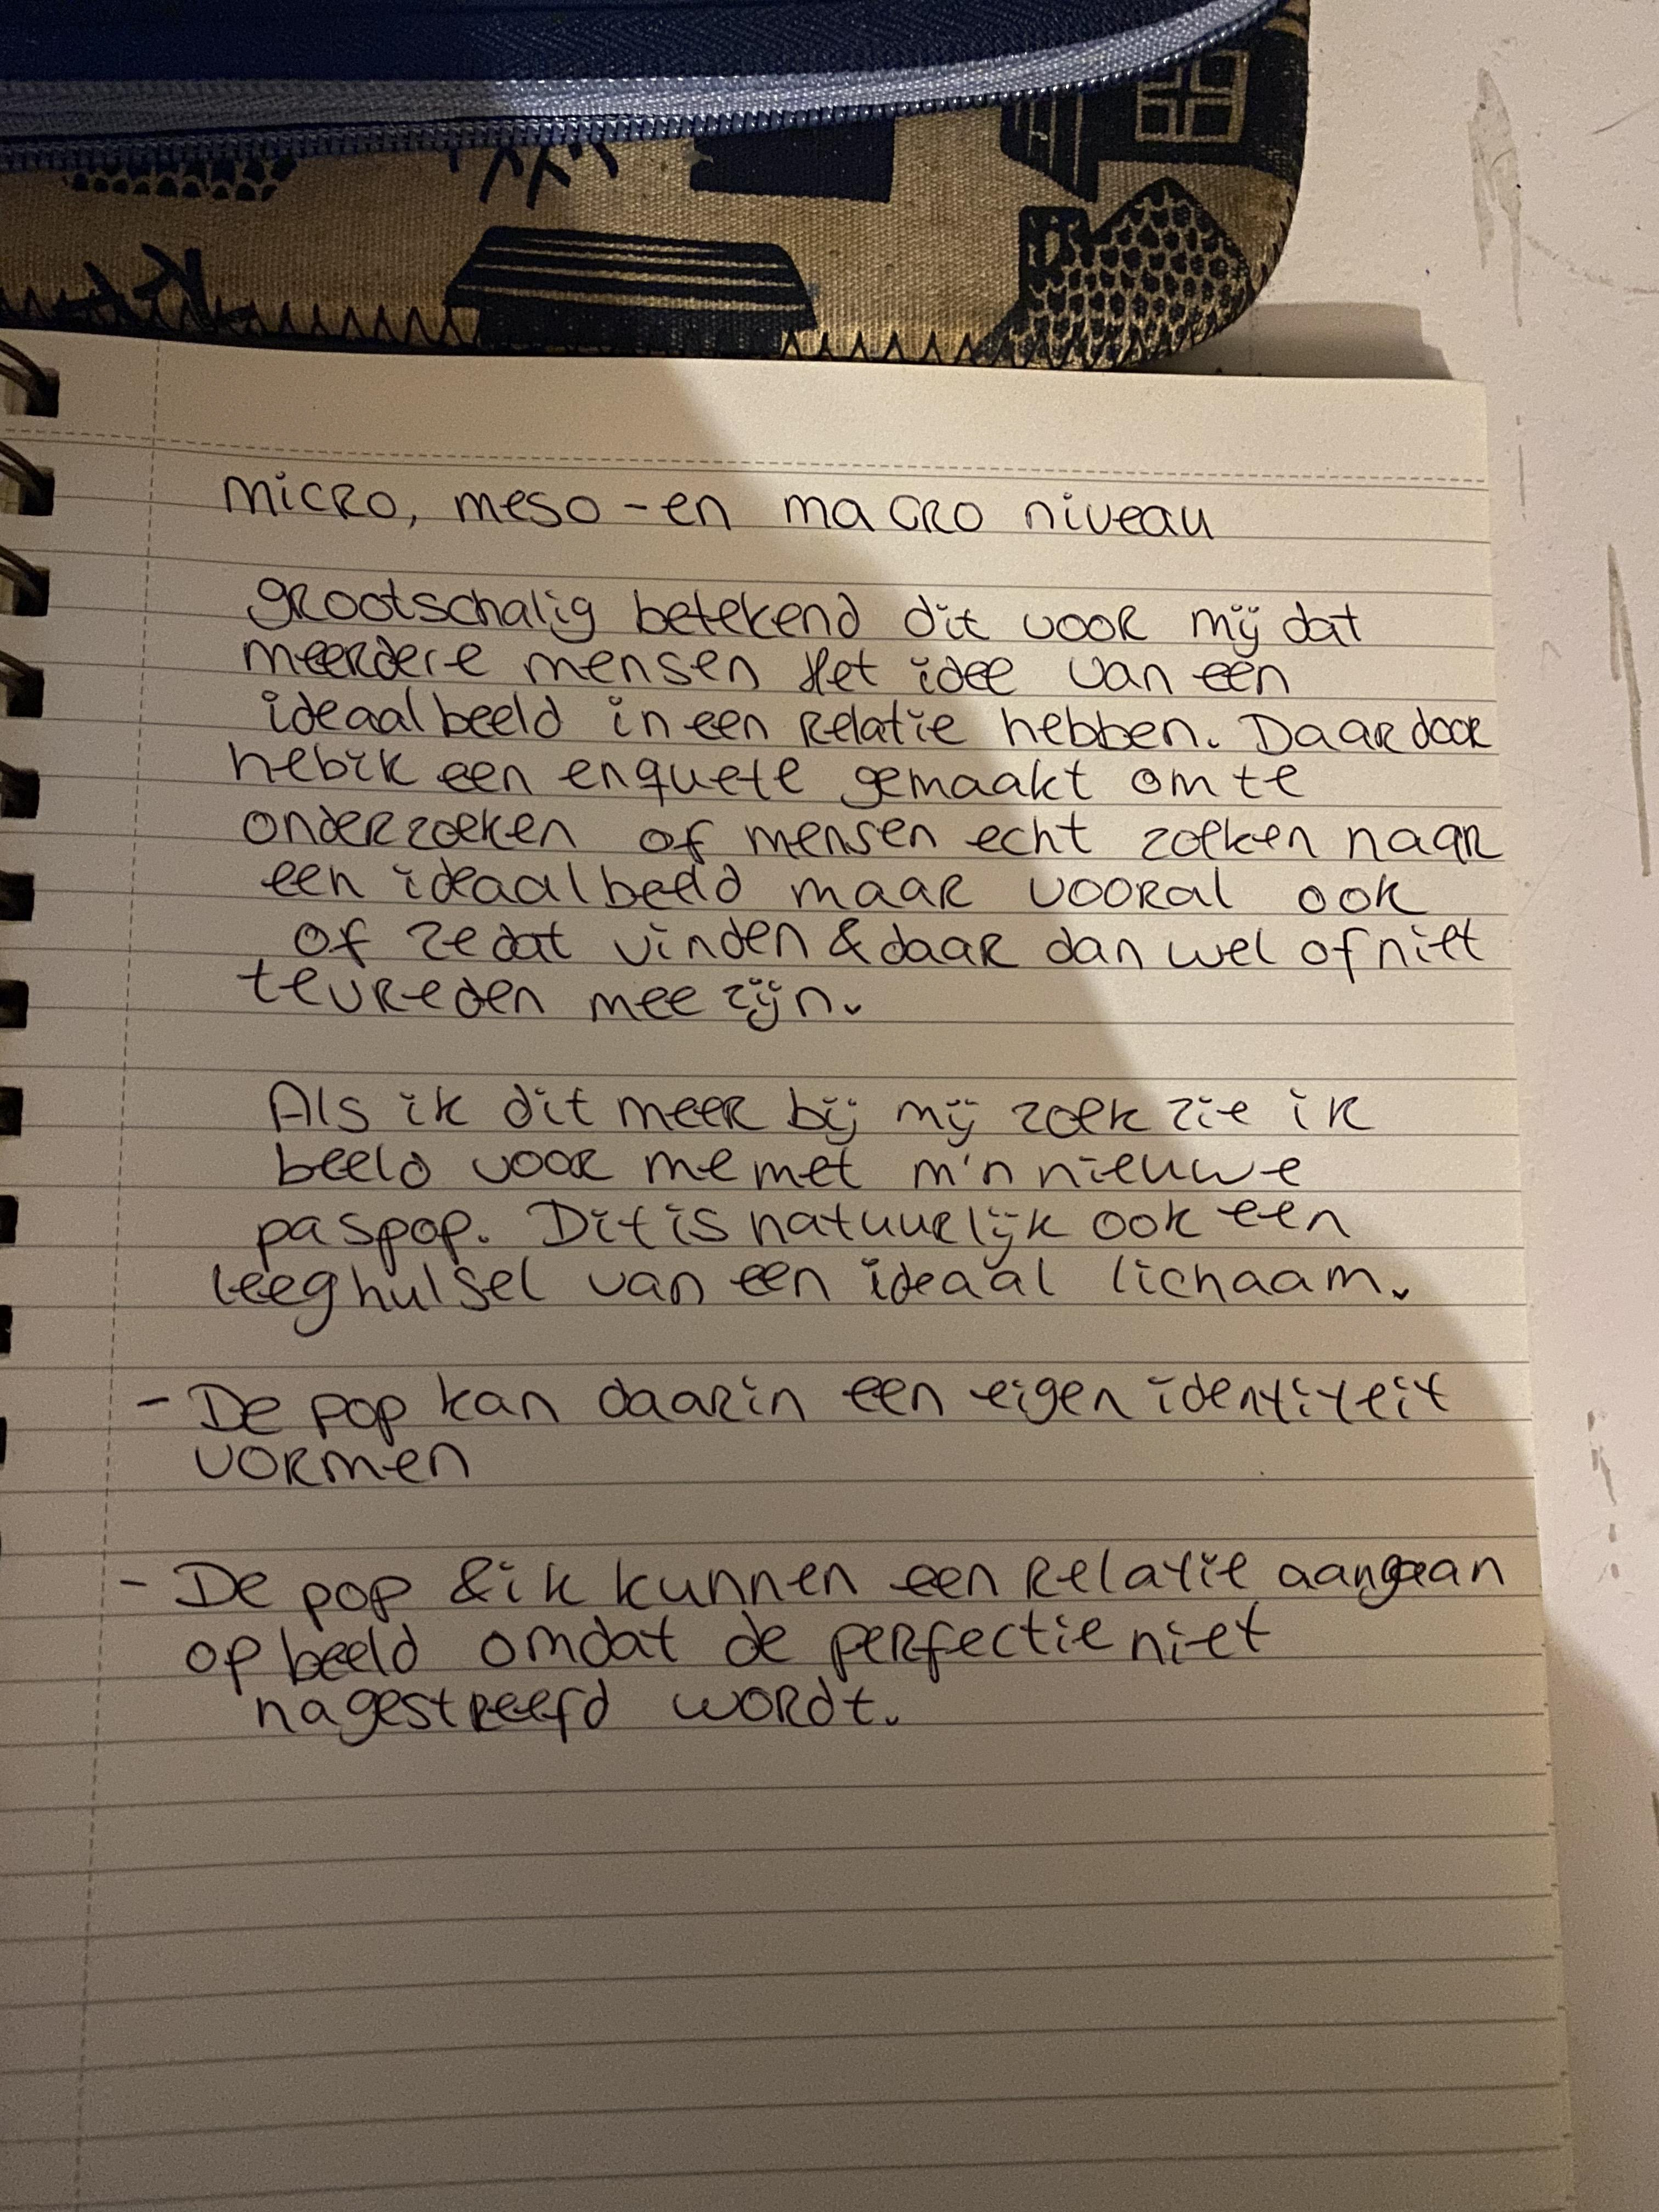 micro, meso - en macro niveau
grootschalig betekend dit voor mij dat
meerdere mensen Het idee van een
ideaalbeeld in een relatie hebben. Daardoor
heb ik een enquete gemaakt om te
onderzoeken of mensen echt zoeken naar
een ideaalbeeld maar vooral ook
of ze dat vinden & daar dan wel of niet
tevreden mee zijn.
Als ik dit meer bij mij zoek zie ik
beeld voor me met m'n nieuwe
paspop. Dit is natuurlijk ook een
leeg hulsel van een ideaal lichaam.
- De pop kan daarin een eigen identiteit
vormen
- De pop & ik kunnen een relatie aangaan
op beeld omdat de perfectie niet
nagestreefd wordt.